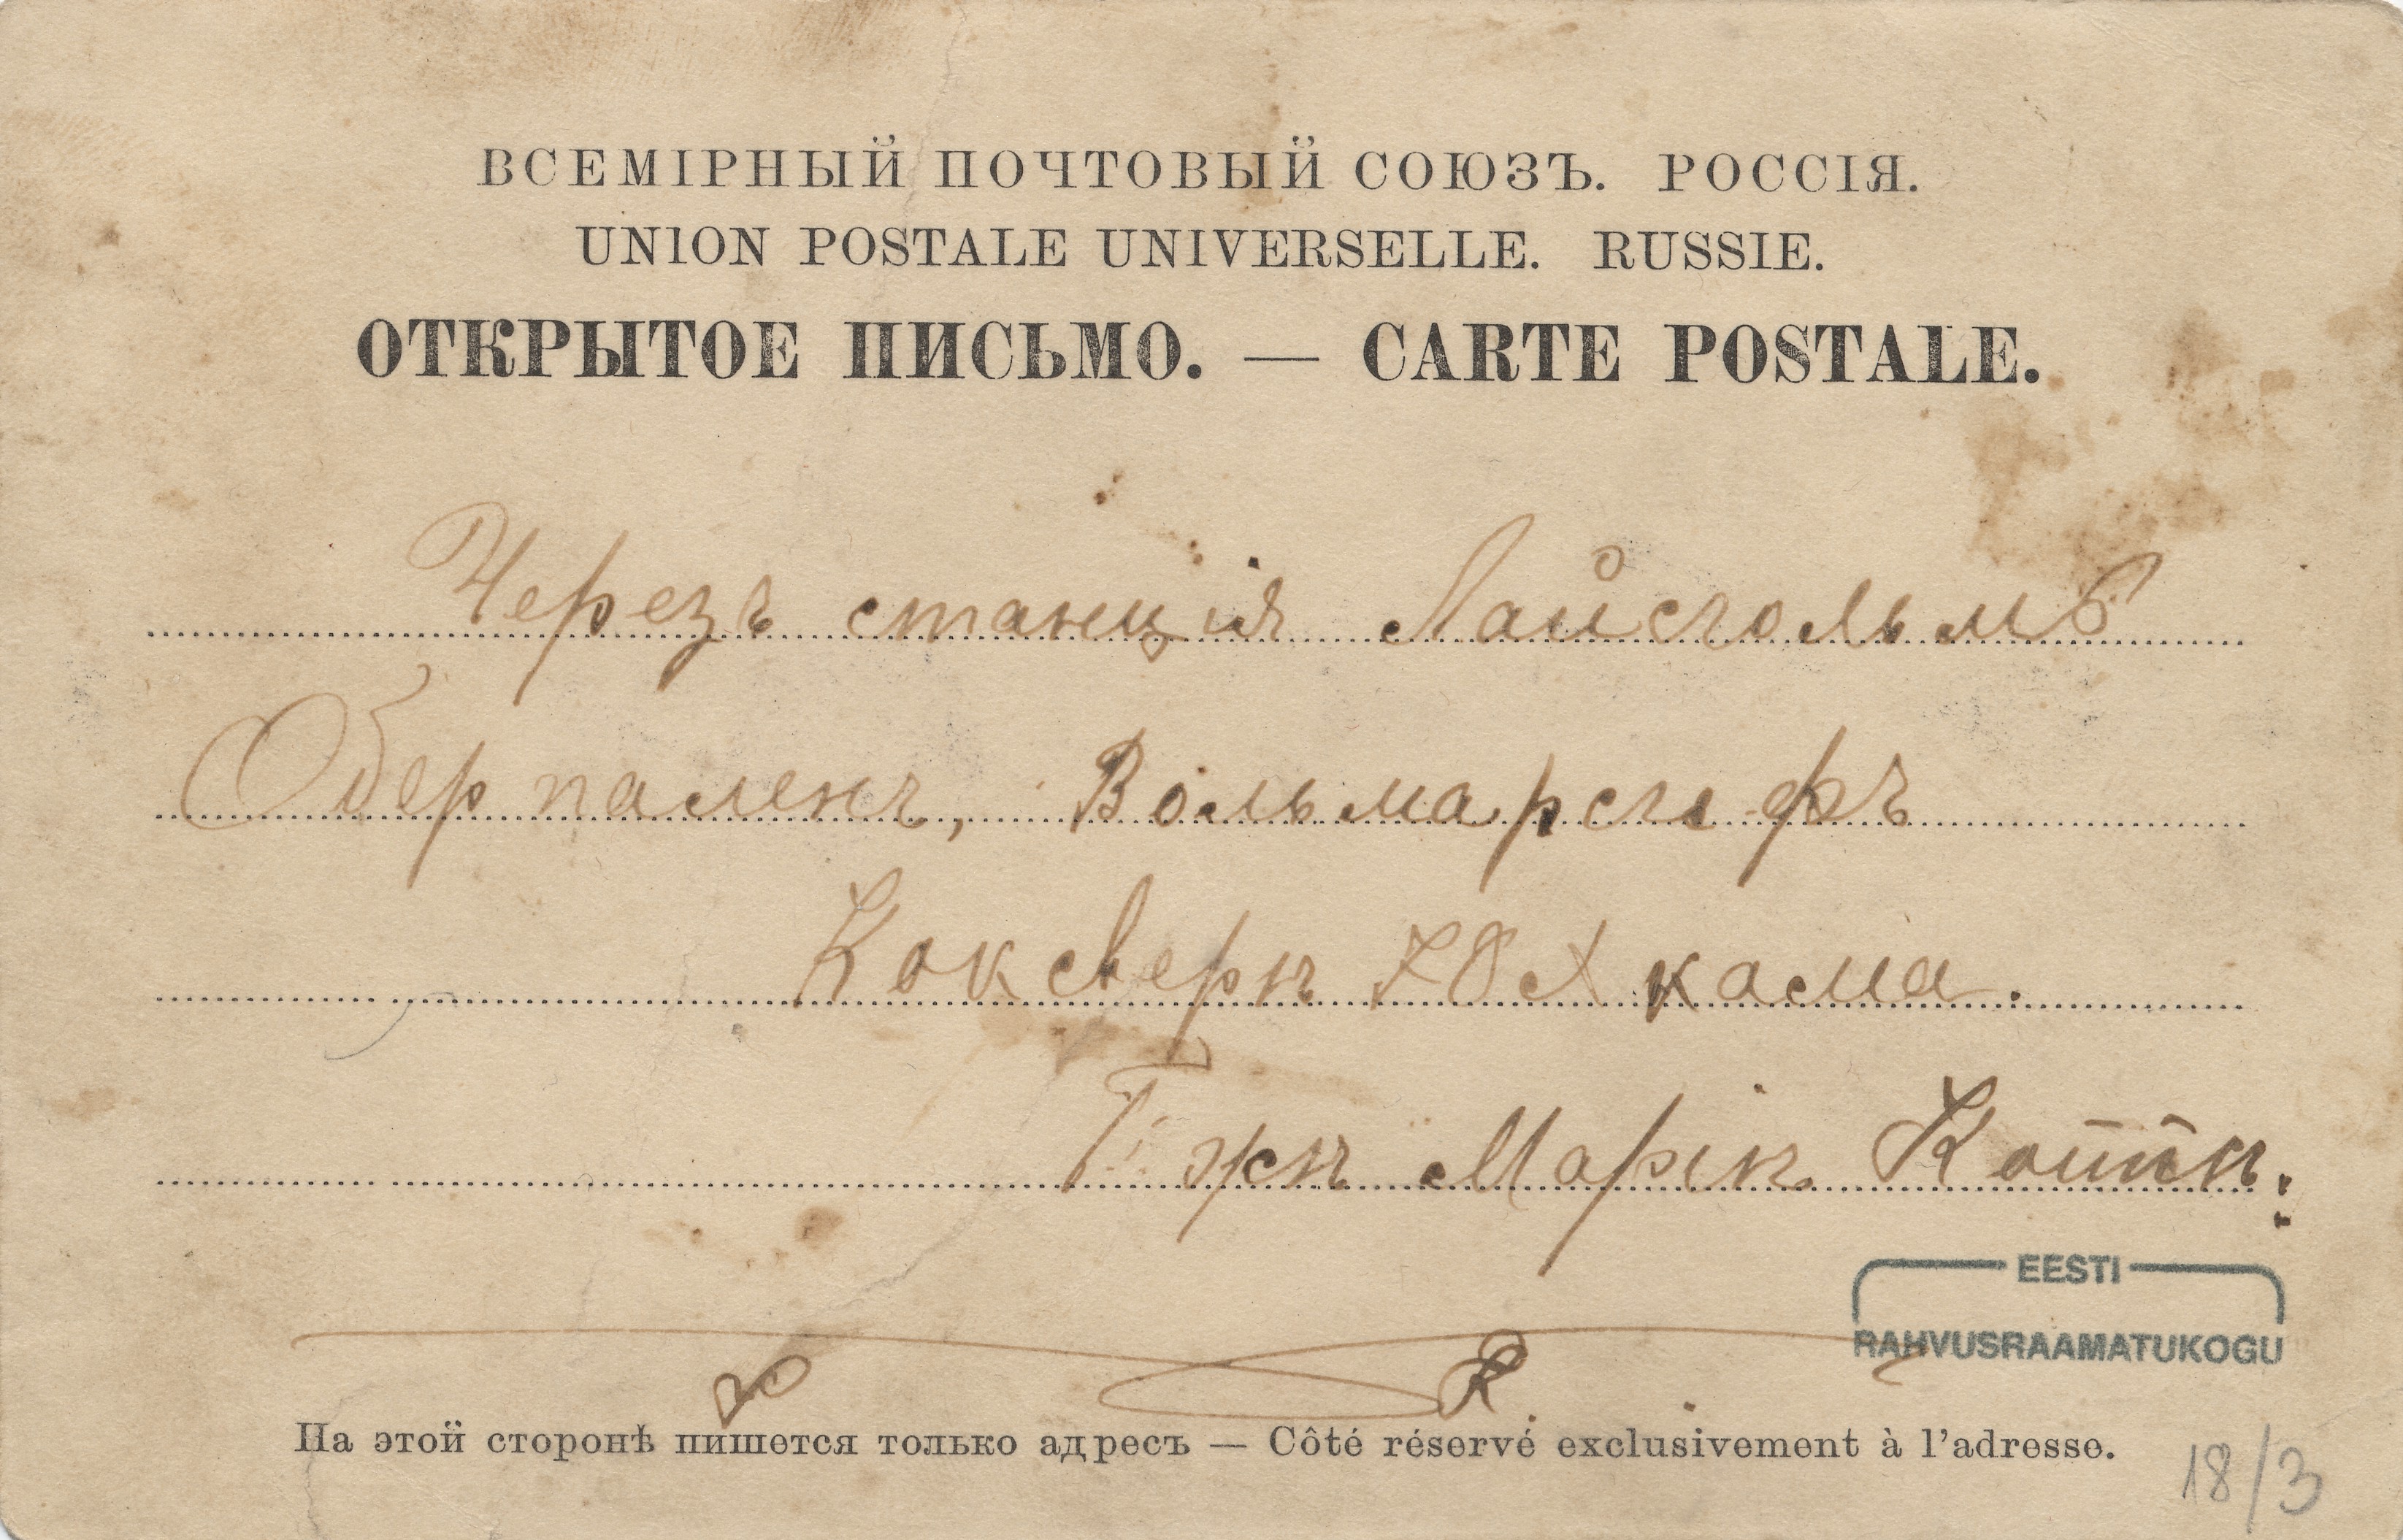 ВСЕМІРНЫЙ ПОЧТОВЫЙ СОЮЗЪ. РОССІЯ.
UNION POSTALE UNIVERSELLE. RUSSIE.
ОТКРЫТОЕ ПИСЬМО. — CARTE POSTALE.
Черезъ станція Лайсгольмъ
Оберпаленъ, Вольмарсгофъ
Коксверъ
Марін
EESTI
RAHVUSRAAMATUKOGU
На этой сторонѣ пишется только адресъ — Côté réservé exclusivement à l'adresse.
18/3